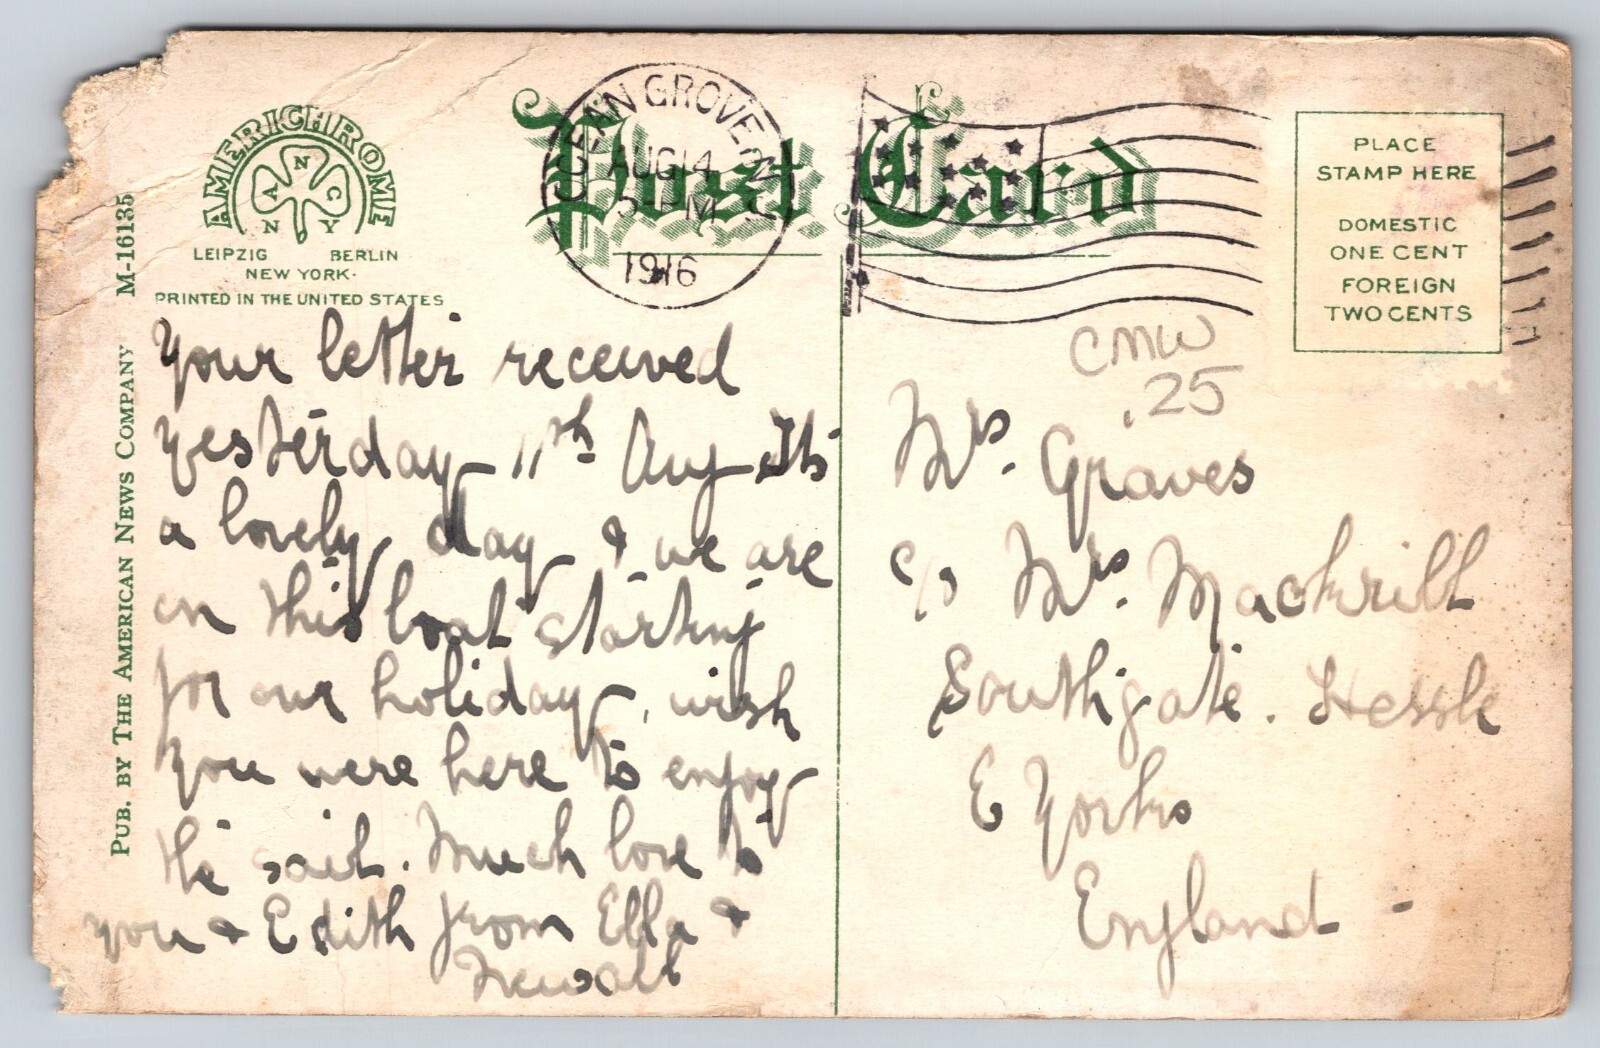 AMERICHROME
ANNCY
LEIPZIG BERLIN
NEW YORK.
PRINTED IN THE UNITED STATES
PUB. BY THE AMERICAN NEWS COMPANY M-16135
Post Card
OCEAN GROVE N.J.
AUG 14
5- PM
1916
PLACE
STAMP HERE
DOMESTIC
ONE CENT
FOREIGN
TWO CENTS
Your letter received
yesterday 11th Aug Its
a lovely day & we are
on this boat starting
for our holiday, wish
you were here to enjoy
the sail. Much love to
you & Edith from Ella &
CMW
.25
Mrs. Graves
c/o Mrs. Mackrill
Southgate. Hessle
E Yorks
England -